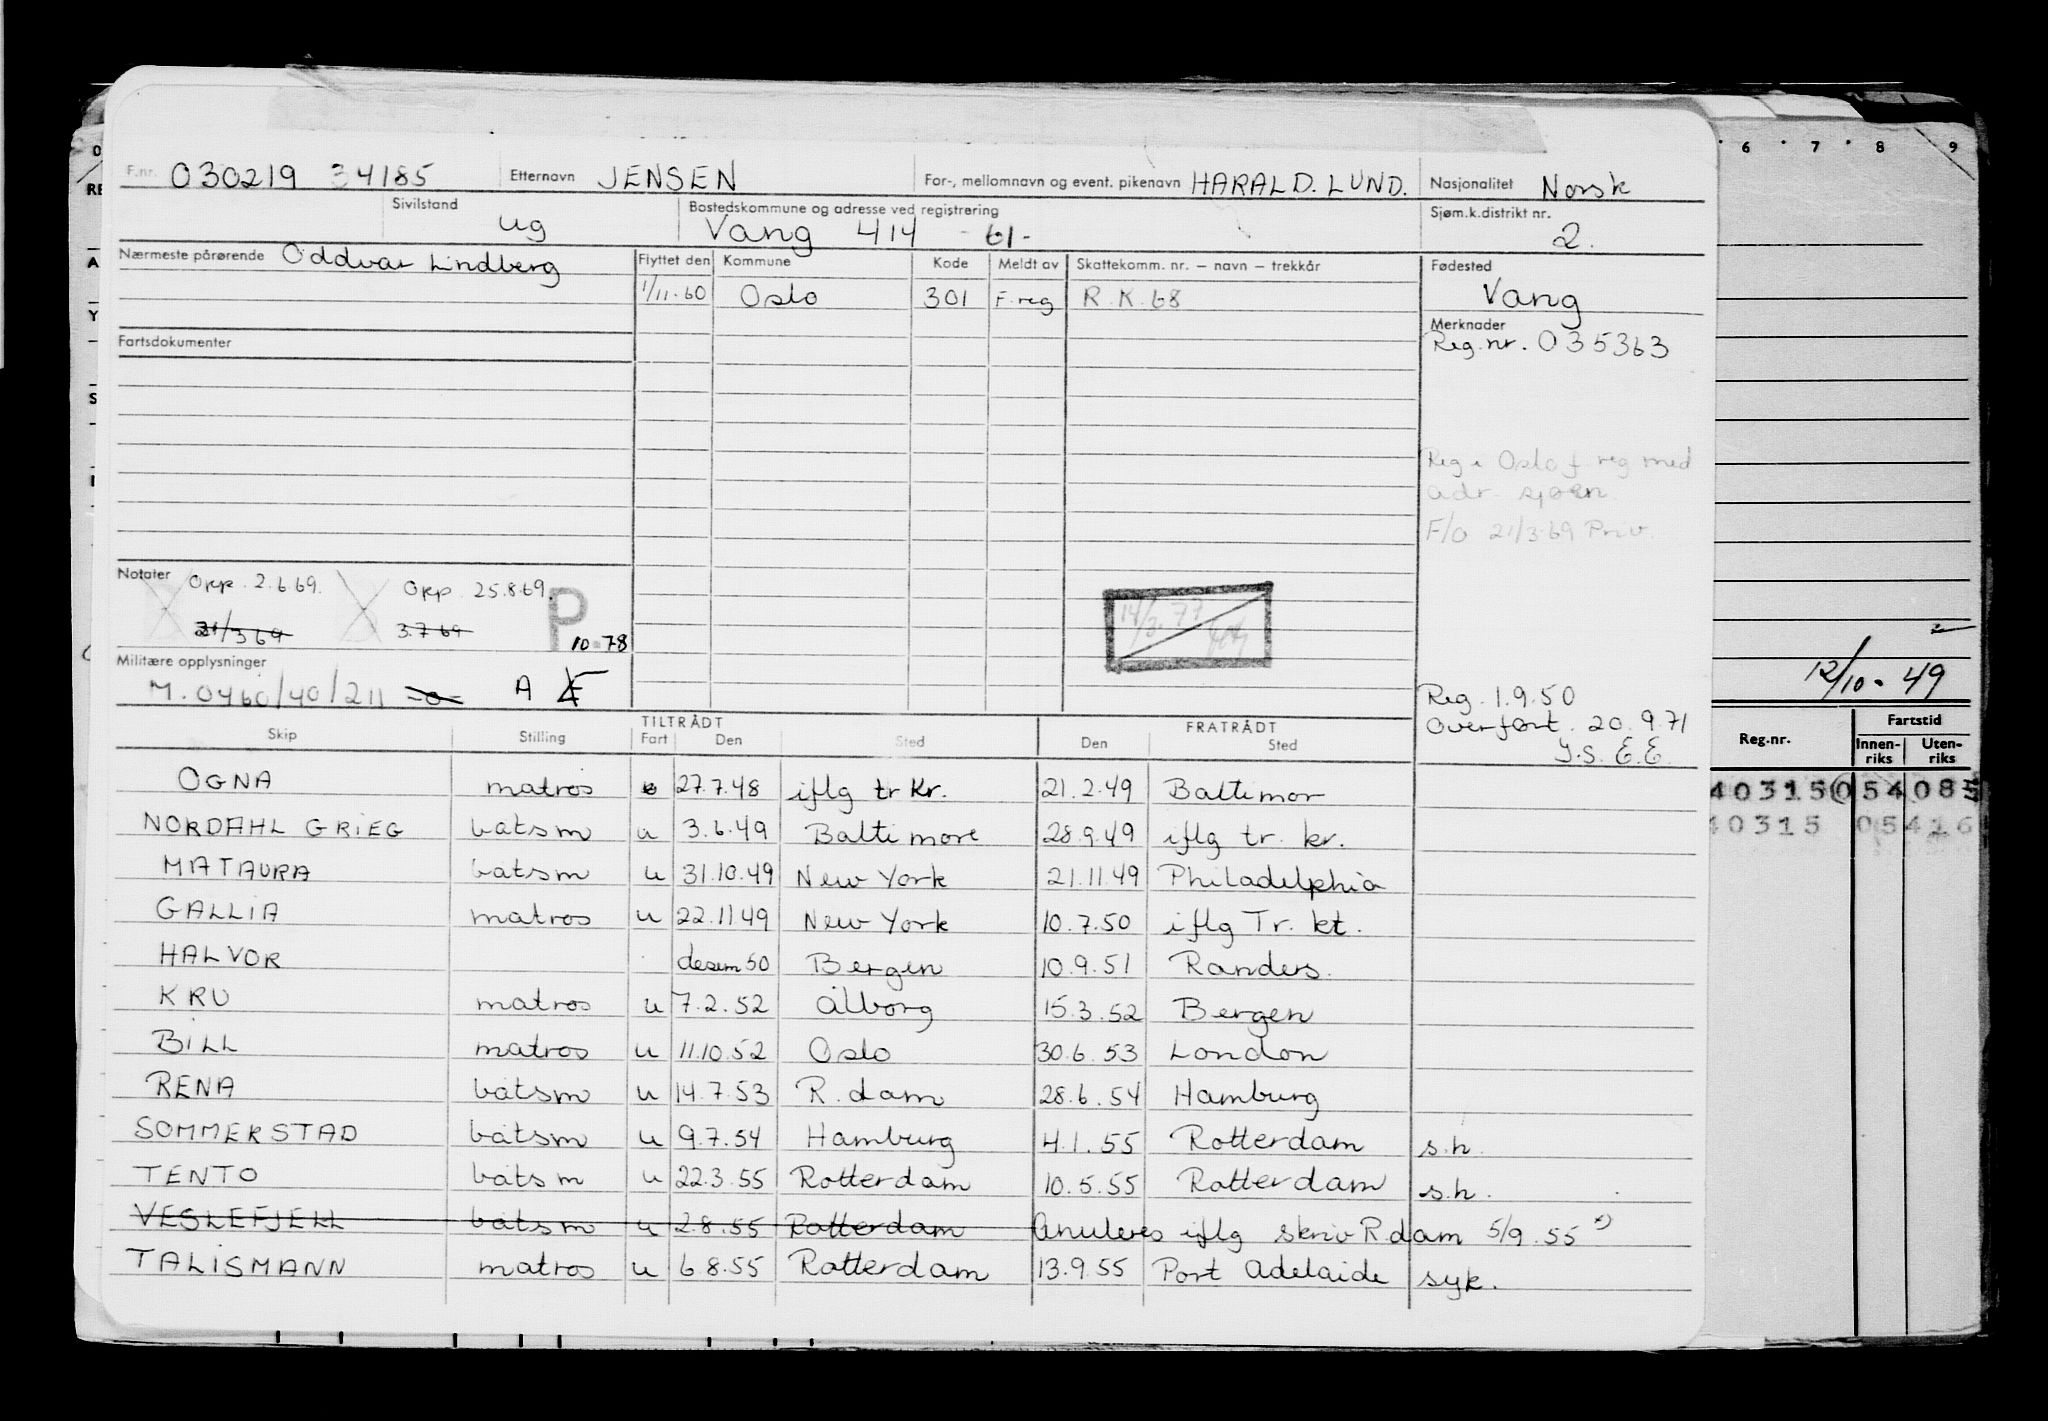 F.nr. 030219 34185 Etternavn JENSEN For-, mellomnavn og event. pikenavn HARALD. LUND. Nasjonalitet Norsk
Sivilstand ug Bostedskommune og adresse ved registrering Vang 414 - 61- Sjøm.k.distrikt nr. 2.
Nærmeste pårørende Oddvar Lindberg Flyttet den Kommune Kode Meldt av Skattekomm. nr. — navn — trekkår Fødested
1/11.60 Oslo 301 F.reg R.K.68 Vang
Merknader
Fartsdokumenter Reg.nr. 035363
Reg i Oslo f reg med
adr. sjøen.
F/o 21/3.69 Priv.
Notater Opp. 2.6.69. Opp. 25.8.69.
21/3 69 3.7 69 P 10.78
14/3.77
Militære opplysninger
M. 0460/40/211 A
Reg. 1.9.50
Overført. 20.9.71
J.S. E.E.
TILTRÅDT FRATRÅDT
Skip Stilling Fart Den Sted Den Sted
OGNA matros 27.7.48 iflg tr kr. 21.2.49 Baltimor
NORDAHL GRIEG båtsm u 3.6.49 Baltimore 28.9.49 iflg tr. kr.
MATAURA båtsm u 31.10.49 New York 21.11.49 Philadelphia
GALLIA matros u 22.11 49 New York 10.7.50 iflg Tr. kt.
HALVOR desem 50 Bergen 10.9.51 Randers.
KRU matros u 7.2.52 Ålborg 15.3.52 Bergen
BILL matros u 11.10.52 Oslo 30.6.53 London
RENA båtsm u 14.7.53 R.dam 28.6.54 Hamburg
SOMMERSTAD båtsm u 9.7.54 Hamburg 4.1.55 Rotterdam s.h.
TENTO båtsm u 22.3.55 Rotterdam 10.5.55 Rotterdam s.h.
VESLEFJELL båtsm u 2.8.55 Rotterdam Anuleres iflg skriv R.dam 5/9.55
TALISMANN matros u 6 8.55 Rotterdam 13.9.55 Port Adelaide syk.
6 7 8 9
12/10-49
Reg.nr. Fartstid
Innen-riks Uten-riks
40315 054085
40315 05426